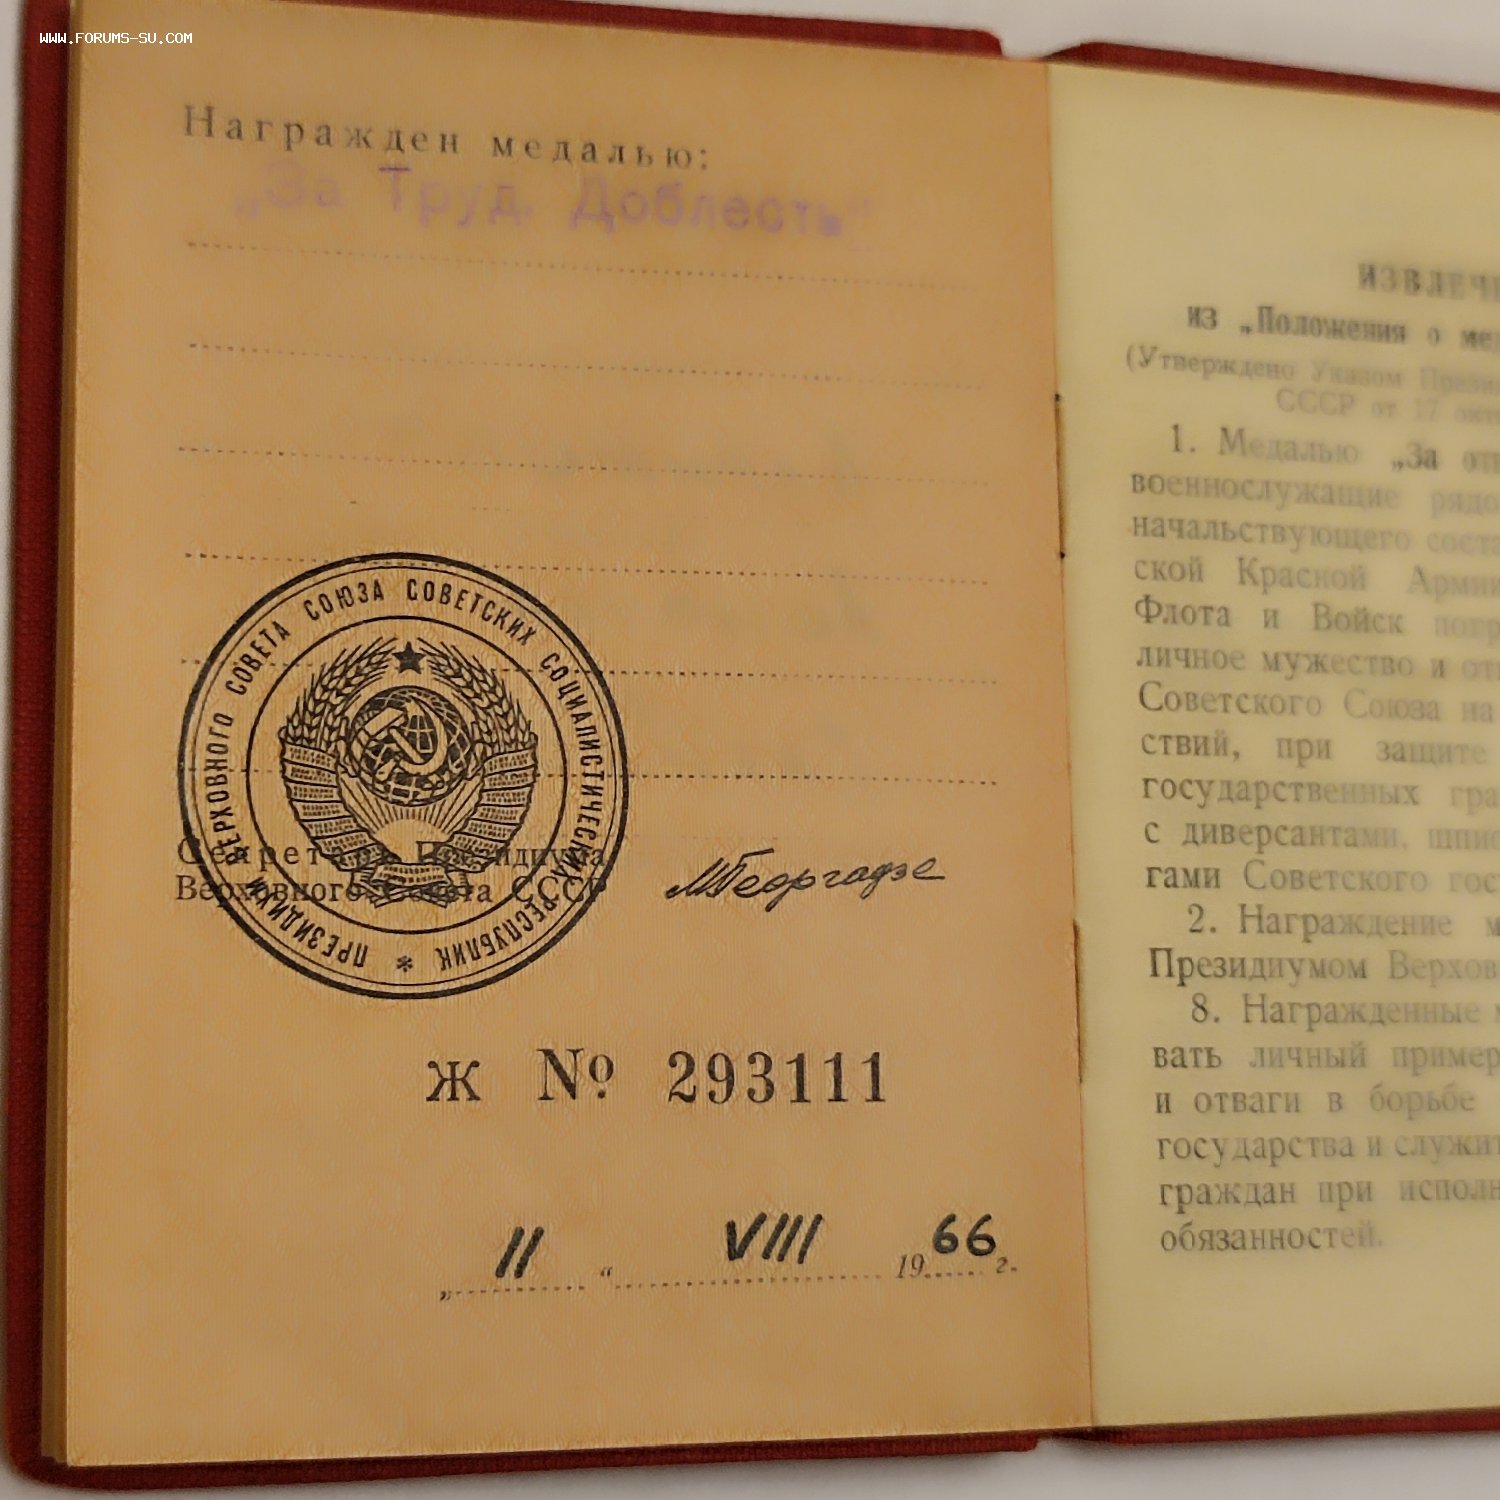 WWW.FORUMS-SU.COM
Награжден медалью:
„За Труд. Доблесть“
ПРЕЗИДИУМ ВЕРХОВНОГО СОВЕТА СОЮЗА СОВЕТСКИХ СОЦИАЛИСТИЧЕСКИХ РЕСПУБЛИК *
Секретарь Президиума
Верховного Совета СССР
МГеоргадзе
Ж № 293111
„ 11 “ VIII 1966 г.
из „Положения о
(Утверждено Указом
СССР от 17
1. Медалью „За
военнослужащие
начальствующего
ской Красной
Флота и Войск
личное мужество и
Советского Союза на
ствий, при защите
государственных
с диверсантами,
гами Советского
2. Награждение
Президиумом
8. Награжденные
вать личный
и отваги в борьбе
государства и
граждан при
обязанностей.